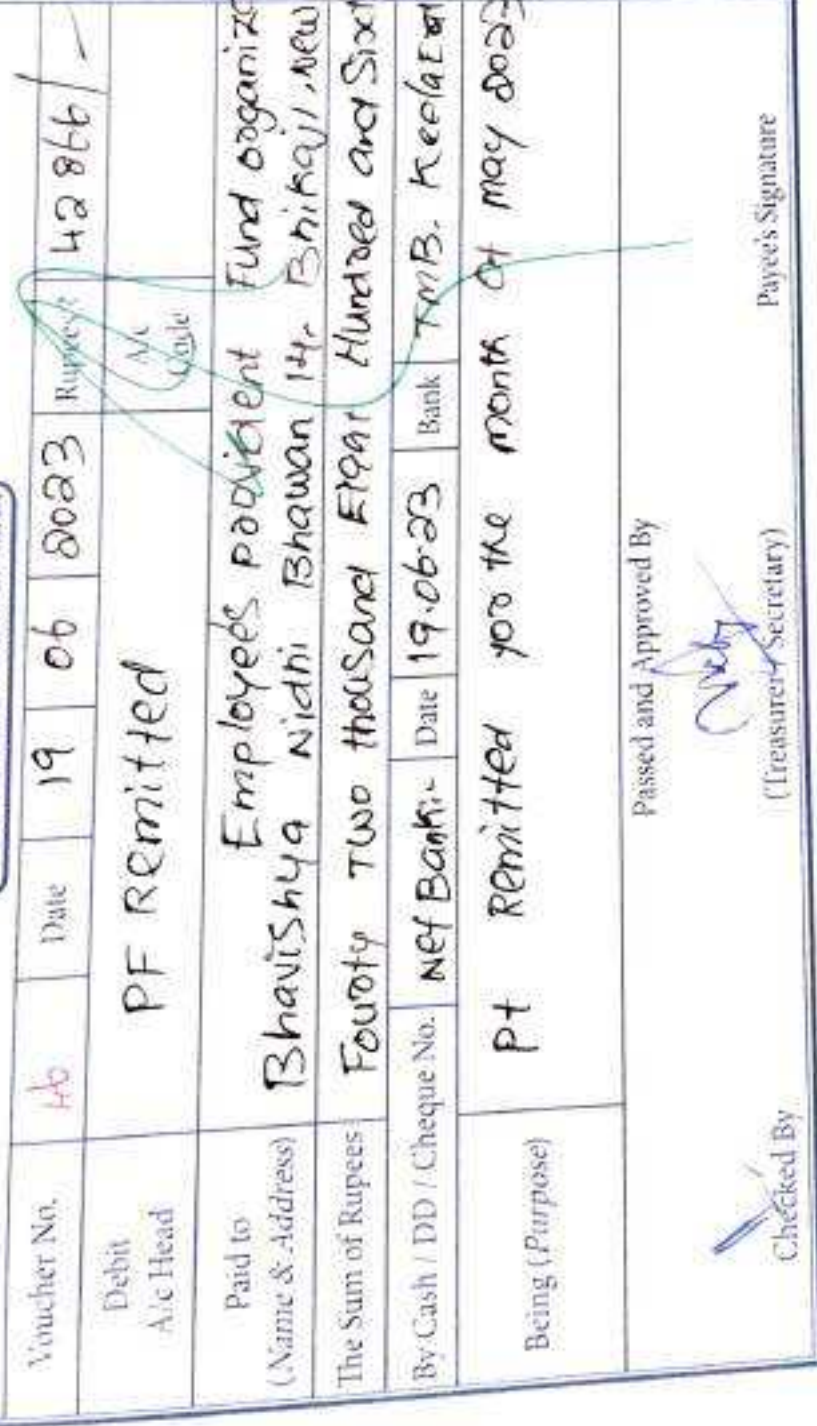 Voucher No. 46 Date 19 06 2023 Rupees ₹ 42866/-
Debit A/c Head PF Remitted A/c Code
Paid to Employees provident Fund organiz
(Name & Address) Bhavishya Nidhi Bhawan 14, Bhikaji, New
The Sum of Rupees Fourty Two thousand Eight Hundred and Sixt
By Cash / DD / Cheque No. Net Banki Date 19.06.23 Bank TMB.
Being (Purpose) Pt Remitted yoo the month of may 2023
Passed and Approved By
Checked By (Treasurer / Secretary) Payee's Signature